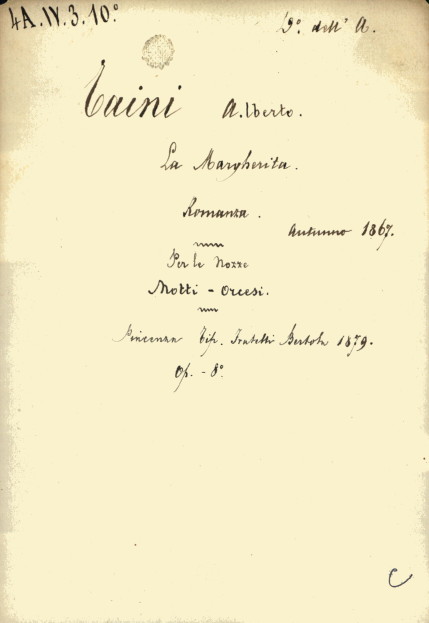 4A.IV.3.10°
D° dell' A.
Taini Alberto.
La Margherita.
Romanza.
Autunno 1867.
Per le Nozze
Motti - Orcesi.
Piacenza Tip. Fratelli Bertola 1879.
Op. - 8°
C